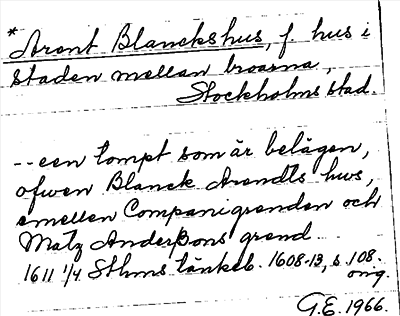 * Arent Blanckshus, f. hus i
staden mellan broarna,
Stockholms stad.
-- een tompt som är belägen,
ofwen Blanck Arendtz hws,
emellen Companigrenden och
Matz Anderßons grend
1611 1/4 Sthms tänkeb. 1608-13, s. 108.
orig.
G.E. 1966.